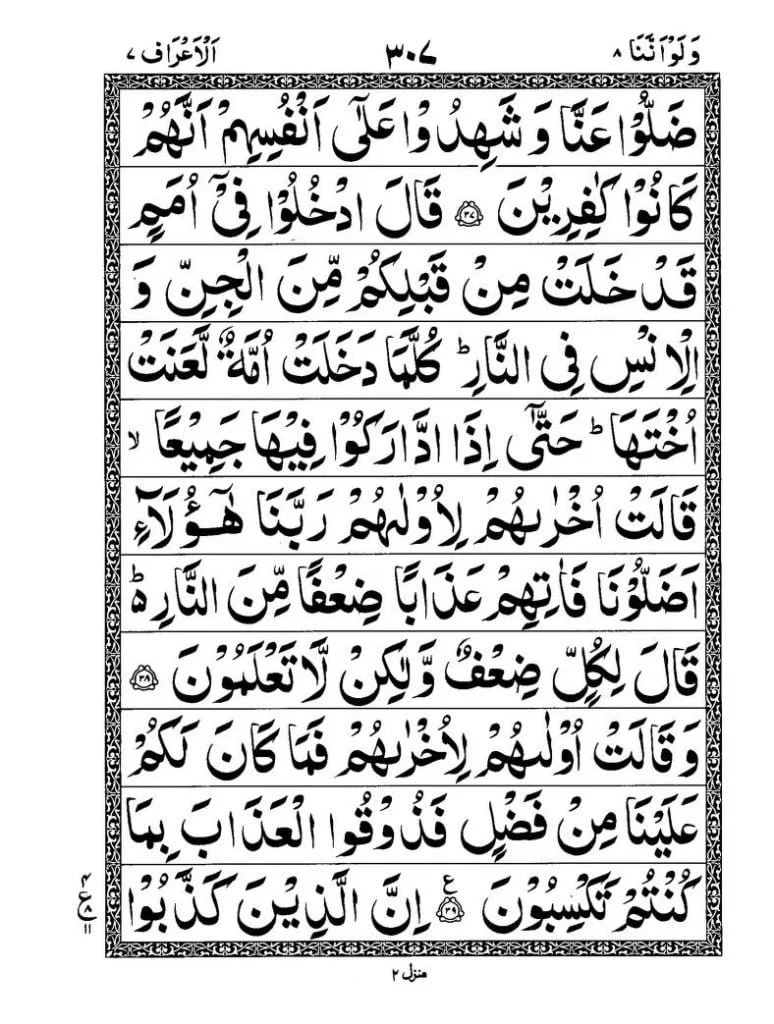 وَلَوْاَنَّنَا ٨ ٣٠٧ اَلْاَعْرَاف ٧
ضَلُّوْا عَنَّا وَ شَهِدُوْا عَلٰۤى اَنْفُسِهِمْ اَنَّهُمْ
كَانُوْا كٰفِرِيْنَ ۝٣٧ قَالَ ادْخُلُوْا فِيْۤ اُمَمٍ
قَدْ خَلَتْ مِنْ قَبْلِكُمْ مِّنَ الْجِنِّ وَ
الْاِنْسِ فِى النَّارِ ؕ كُلَّمَا دَخَلَتْ اُمَّةٌ لَّعَنَتْ
اُخْتَهَا ؕ حَتّٰۤى اِذَا ادَّارَكُوْا فِيْهَا جَمِيْعًا ۙ
قَالَتْ اُخْرٰىهُمْ لِاُوْلٰىهُمْ رَبَّنَا هٰۤؤُلَآءِ
اَضَلُّوْنَا فَاٰتِهِمْ عَذَابًا ضِعْفًا مِّنَ النَّارِ ؕ۬
قَالَ لِكُلٍّ ضِعْفٌ وَّلٰكِنْ لَّا تَعْلَمُوْنَ ۝٣٨
وَ قَالَتْ اُوْلٰىهُمْ لِاُخْرٰىهُمْ فَمَا كَانَ لَكُمْ
عَلَيْنَا مِنْ فَضْلٍ فَذُوْقُوا الْعَذَابَ بِمَا
كُنْتُمْ تَكْسِبُوْنَ ۝٣٩ ع اِنَّ الَّذِيْنَ كَذَّبُوْا
٤
ع
٨
١١
منزل ٢